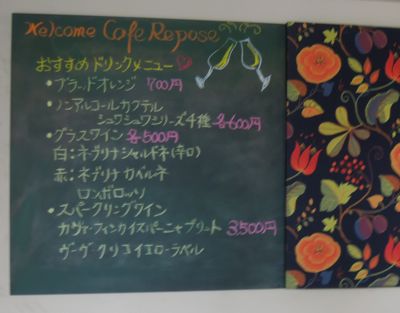 Welcome Cafe Repose
おすすめドリンクメニュー
・ブラッドオレンジ 700円
・ノンアルコールカクテル
シュワシュワシリーズ4種 各600円
・グラスワイン 各500円
白：ネデリナシャルドネ(辛口)
赤：ネデリナカベルネ
ロンポロッソ
・スパークリングワイン
カヴァ・フィンカイスパーニャブリュット 3,500円
ヴーヴ・クリコイエローラベル